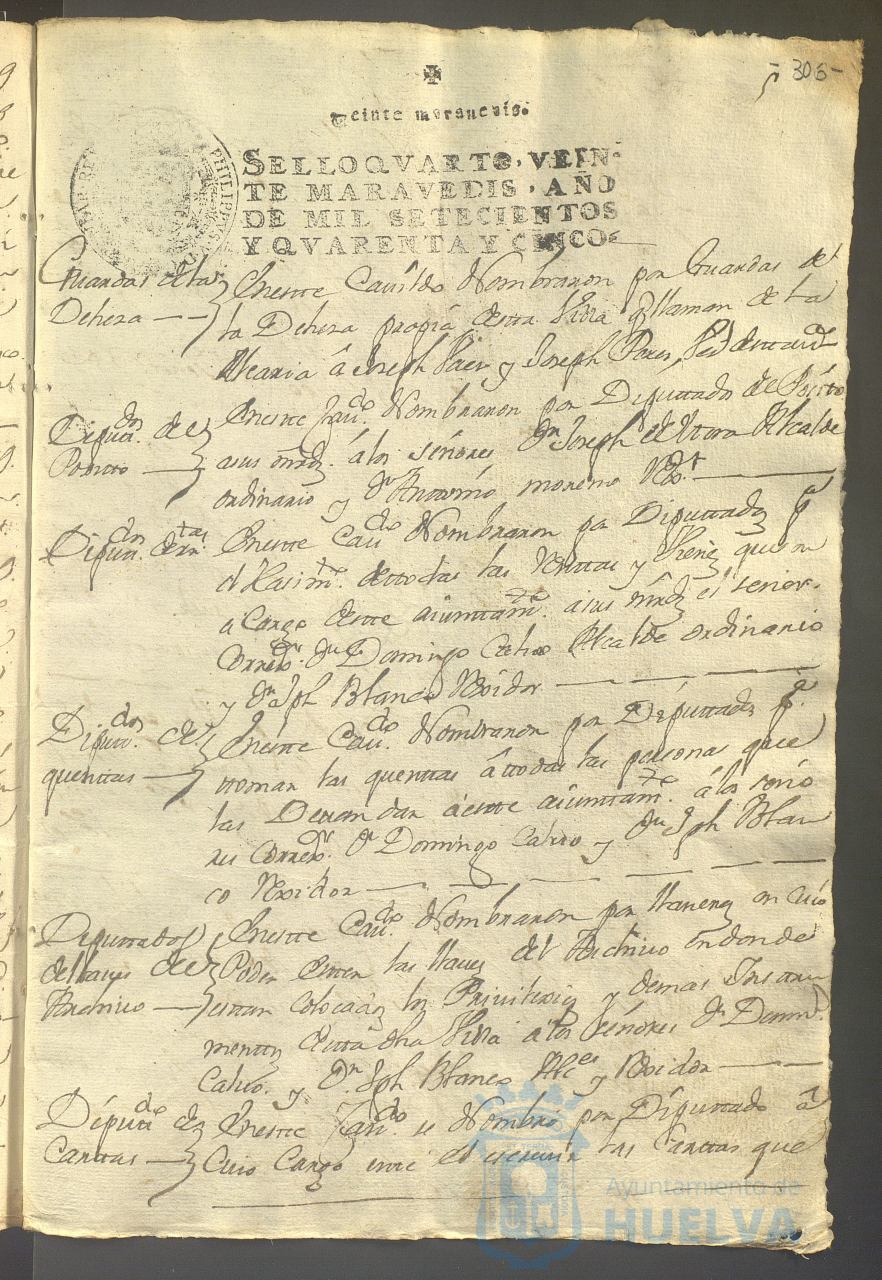 306
Veinte maravedis.
SELLO QVARTO, VEIN-
TE MARAVEDIS, AÑO
DE MIL SETECIENTOS
Y QVARENTA Y CINCO
PHILIPPVS
Guardas de la
Dehesa
En este Cavildo Nombraron por Guardas de
la Dehesa propia desta Villa q llaman de la
Alcaria â Joseph Paez y Joseph Perez,
Diputdos de
Posito
En este Cavdo Nombraron por Diputtado de Posito
a sus mrds â los señores Dn Joseph de Alcalde
ordinario y Dn Antonio moreno
Diputdos de rentas
En este Cavdo Nombraron por Diputtados pa
el Hasimto de ttodas las Renttas y Vienes que son
a Cargo deste aiunttamto a sus mrds el señor
Corredor Dn Domingo Calvo Alcalde ordinario
y Dn Jph Blanco Rexidor
Diputtdos de
quenttas
En este Cavdo Nombraron por Diputtados pa
ttomar las quenttas â ttodas las personas que
las Devan dar â este aiunttamto â los seño
res Corredor Dn Domingo Calvo y Dn Jph Blan
co Rexidor
Diputtados
de llaves de
Archivo
En este Cavdo Nombraron por llaveros en cuio
Poder esten las llaves del Archivo en donde
estan colocados los Privilexios y demas Instru
mentos de esta dha Villa a los Señores Dn Domo
Calvo y Dn Jph Blanco Alces y Rexidor
Diputdo de
Carttas
En este Cavdo se Nombró por Diputtado â
Cuio Cargo estté el escrevir las Carttas que
Ayuntamiento de
HUELVA